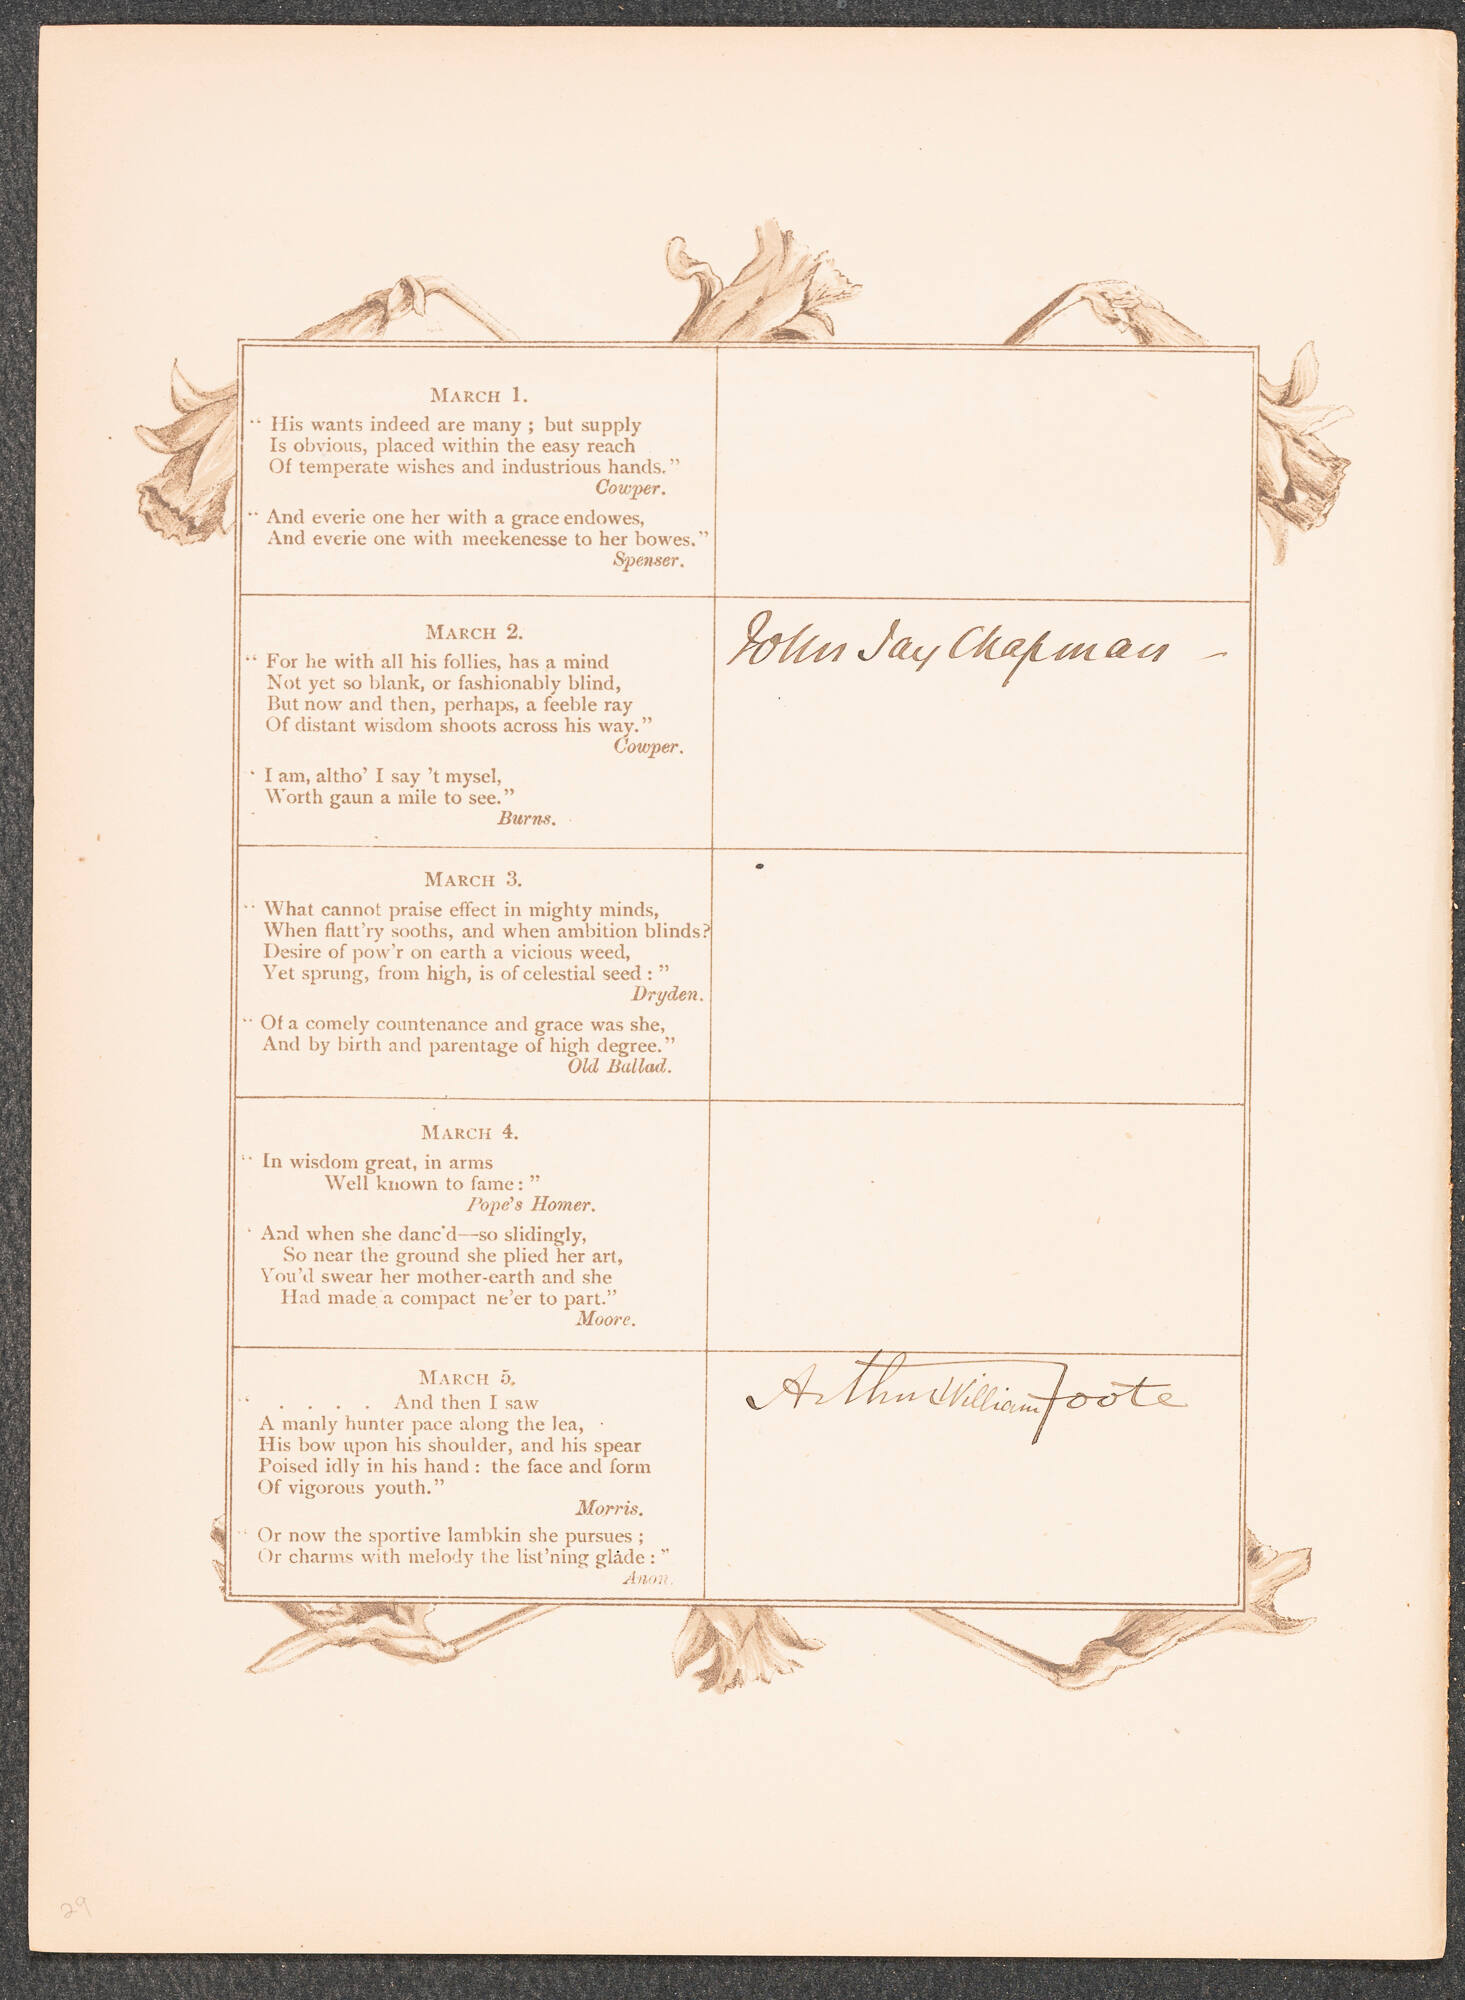 MARCH 1.
“ His wants indeed are many ; but supply
Is obvious, placed within the easy reach
Of temperate wishes and industrious hands.”
Cowper.
“ And everie one her with a grace endowes,
And everie one with meekenesse to her bowes.”
Spenser.
MARCH 2.
“ For he with all his follies, has a mind
Not yet so blank, or fashionably blind,
But now and then, perhaps, a feeble ray
Of distant wisdom shoots across his way.”
Cowper.
‘ I am, altho’ I say ’t mysel,
Worth gaun a mile to see.”
Burns.
John Jay Chapman –
MARCH 3.
“ What cannot praise effect in mighty minds,
When flatt’ry sooths, and when ambition blinds?
Desire of pow’r on earth a vicious weed,
Yet sprung, from high, is of celestial seed : ”
Dryden.
“ Of a comely countenance and grace was she,
And by birth and parentage of high degree.”
Old Ballad.
MARCH 4.
“ In wisdom great, in arms
Well known to fame : ”
Pope’s Homer.
‘ And when she danc’d—so slidingly,
So near the ground she plied her art,
You’d swear her mother-earth and she
Had made a compact ne’er to part.”
Moore.
MARCH 5.
“ . . . . And then I saw
A manly hunter pace along the lea,
His bow upon his shoulder, and his spear
Poised idly in his hand : the face and form
Of vigorous youth.”
Morris.
“ Or now the sportive lambkin she pursues ;
Or charms with melody the list’ning glade : ”
Anon.
Arthur William Foote
29